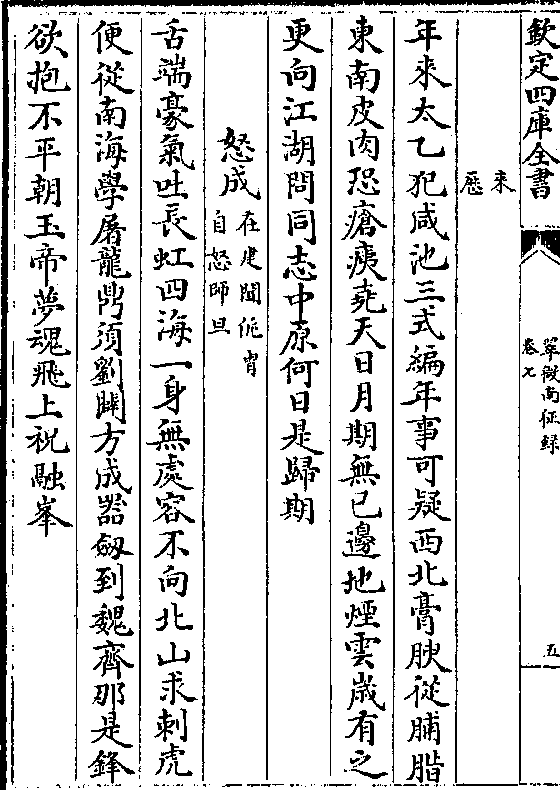 欽定四庫全書
翠微南征錄
卷七
五
来
厯
年来太乙犯咸池三式編年事可疑西北膏腴從脯腊
東南皮肉恐瘡痍堯天日月期無已邊地煙雲嵗有之
更向江湖問同志中原何日是歸期
怒成
在建聞侂胄
自怒師旦
舌端豪氣吐長虹四海一身無處容不向北山求刺虎
便從南海學屠龍鼎須劉闢方成器劒到魏齊那是鋒
欲抱不平朝玉帝夢魂飛上祝融峯